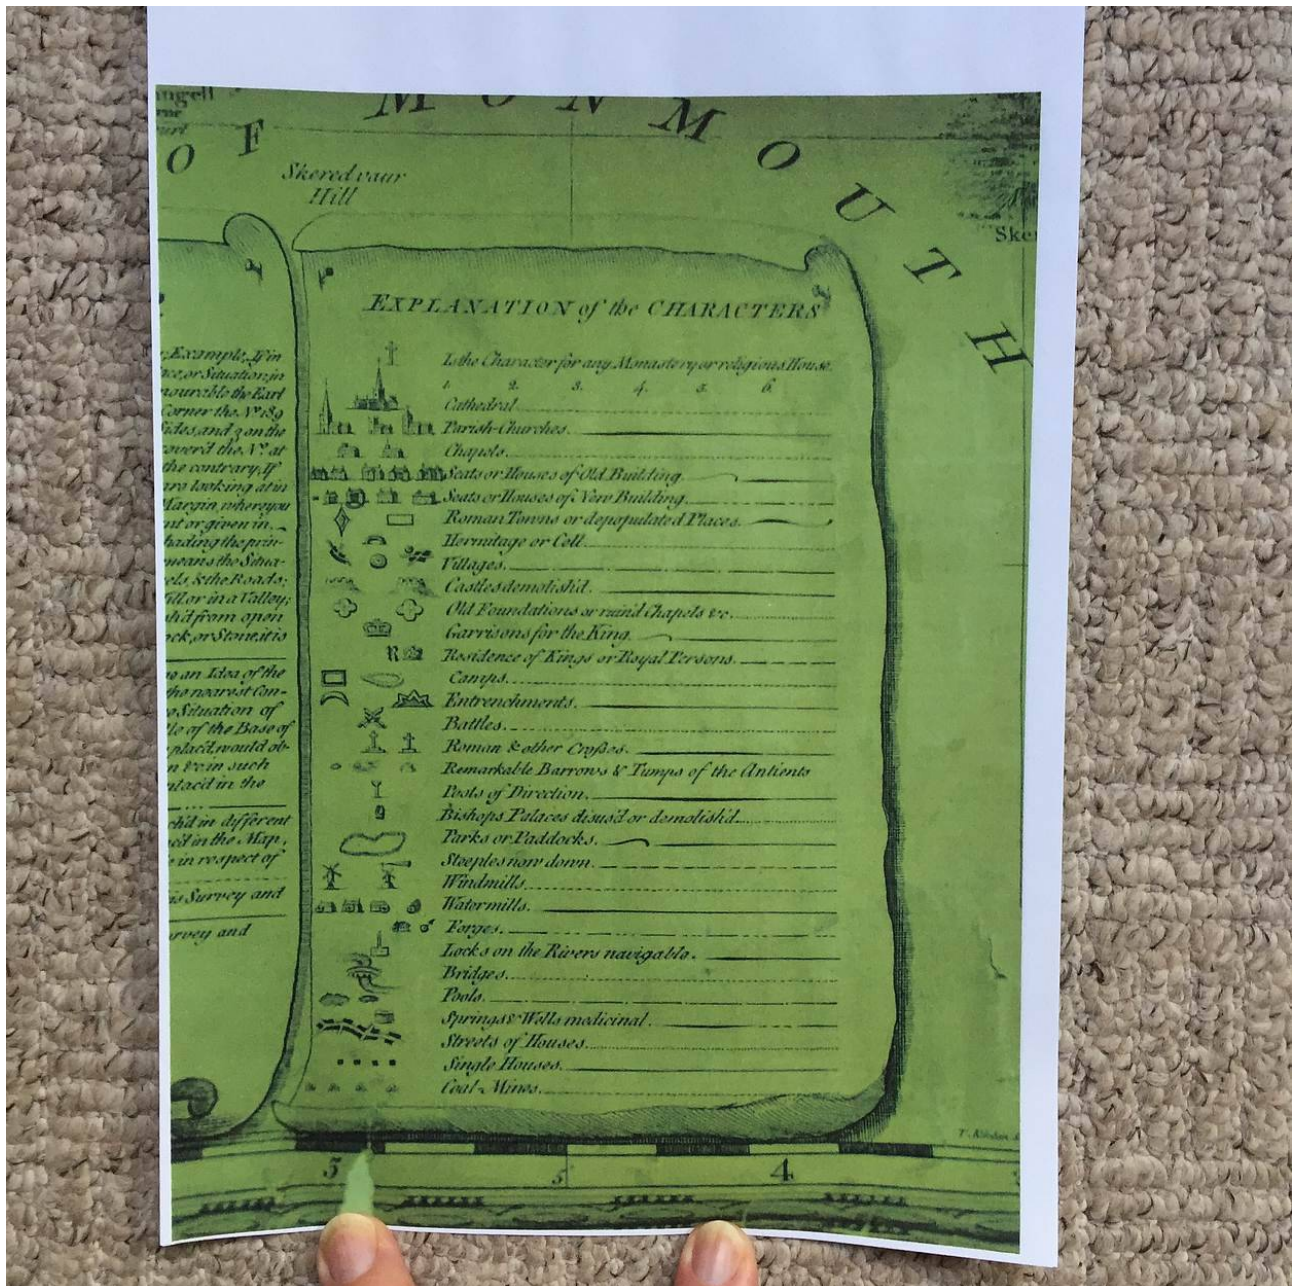 OF MONMOUTH
Skeredvaur
Hill
Sker
EXPLANATION of the CHARACTERS
Is the Character for any Monastery or religious House.
1. 2. 3. 4. 5. 6.
Cathedral
Parish-Churches.
Chapels.
Seats or Houses of Old Building
Seats or Houses of New Building
Roman Towns or depopulated Places.
Hermitage or Cell
Villages.
Castles demolish'd.
Old Foundations or ruin'd Chapels &c.
Garrisons for the King
R Residence of Kings or Royal Persons.
Camps.
Entrenchments.
Battles.
Roman & other Crosses.
Remarkable Barrows & Tumps of the Antients
Posts of Direction.
Bishops Palaces disus'd or demolish'd
Parks or Paddocks.
Steeples now down.
Windmills
Watermills.
Forges.
Locks on the Rivers navigable.
Bridges.
Pools.
Springs & Wells medicinal.
Streets of Houses.
Single Houses.
Coal-Mines.
Example, If in
or Situation, in
the Earl
Corner the N.º 189
Sides, and 3 on the
the N.º at
the contrary, If
are looking at in
Margin, where you
or given in.
the prin-
means the Situa-
& the Roads;
Hill or in a Valley;
from open
or Stone, it is
an Idea of the
the nearest Con-
Situation of
of the Base of
plac'd, would ob-
&c in such
plac'd in the
in different
in the Map,
in respect of
Survey and
and
3 5 4